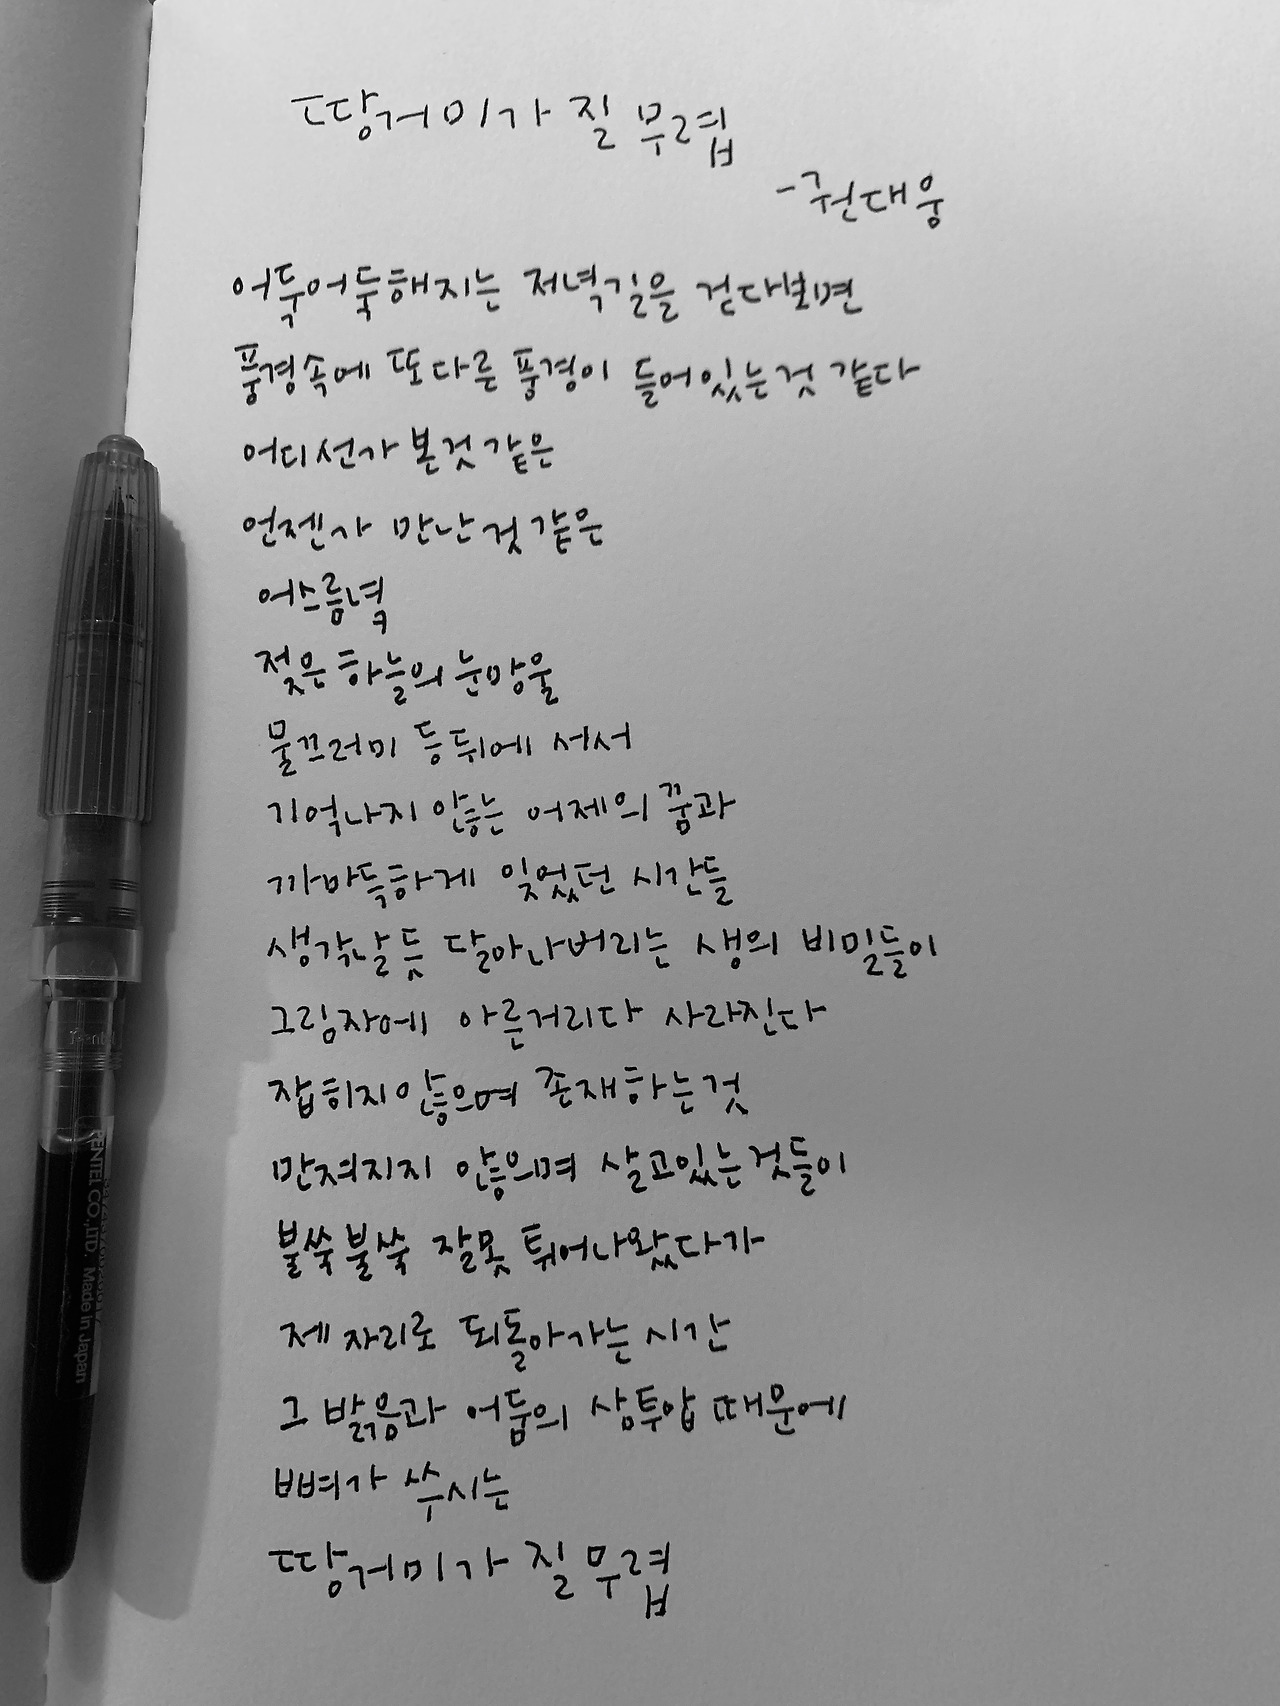 땅거미가 질 무렵
-권대웅
어둑어둑해지는 저녁길을 걷다보면
풍경속에 또다른 풍경이 들어있는것 같다
어디선가 본것 같은
언젠가 만난것 같은
어스름녘
젖은 하늘의 눈망울
물끄러미 등뒤에 서서
기억나지 않는 어제의 꿈과
까마득하게 잊었던 시간들
생각날듯 달아나버리는 생의 비밀들이
그림자에 아른거리다 사라진다
잡히지않으며 존재하는것
만져지지 않으며 살고있는것들이
불쑥불쑥 잘못 튀어나왔다가
제자리로 되돌아가는 시간
그 밝음과 어둠의 삼투압 때문에
뼈가 쑤시는
땅거미가 질 무렵
PENTEL CO.,LTD. Made in Japan